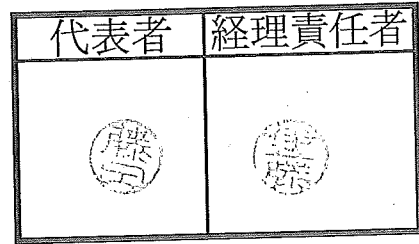 代表者 経理責任者